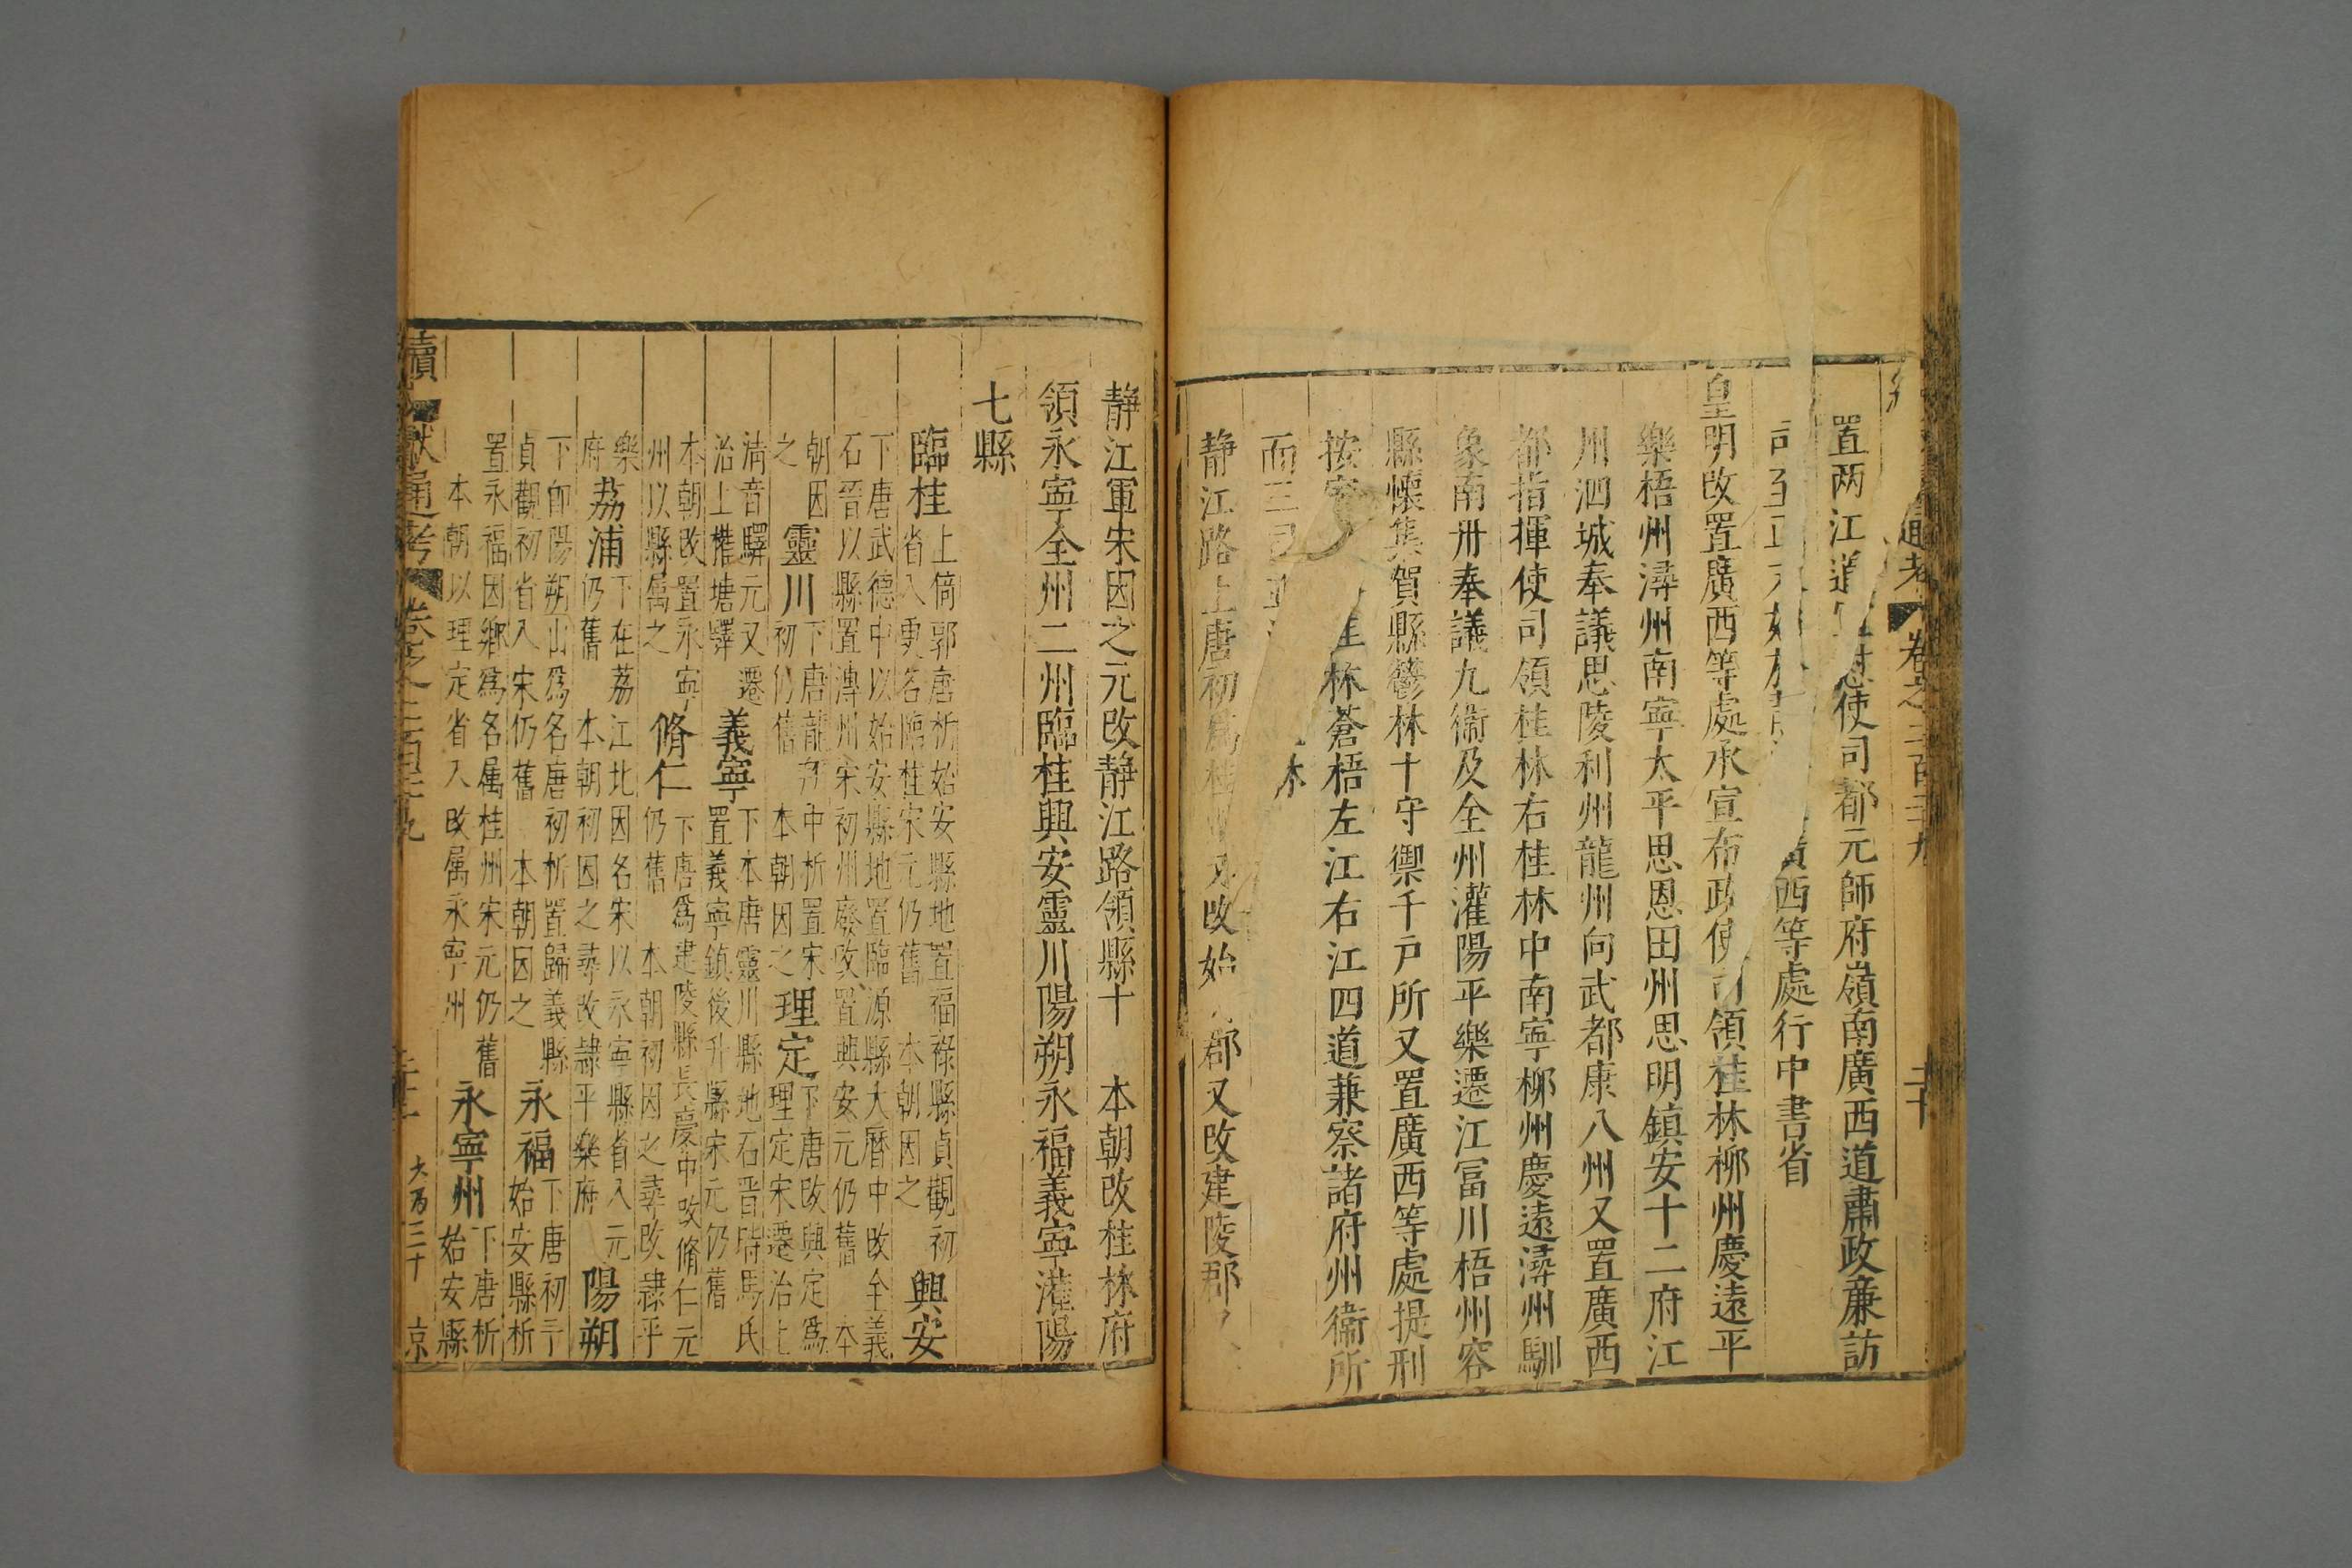 通考 卷之二百三十九 二十
置两江道宣慰使司都元師府嶺南廣西道肅政㢘訪
司至正 西等處行中書省
皇明改置廣西等處承宣布政使司領桂林柳州慶遠平
樂梧州潯州南寧太平思恩田州思明鎮安十二府江
州泗城奉議思陵利州龍州向武都康八州又置廣西
都指揮使司領桂林右桂林中南寧柳州慶遠潯州馴
象南丹奉議九衞及全州灌陽平樂遷江冨川梧州容
縣懷集賀縣鬱林十守禦千戸所又置廣西等處提刑
按察 桂林蒼梧左江右江四道兼察諸府州衞所
而三司 本
静江路上唐初爲桂州 改始 郡又改建陵郡
静江軍宋因之元改静江路領縣十 本朝改桂林府
領永寧全州二州臨桂興安靈川陽朔永福義寧灌陽
七縣
臨桂 上倚郭唐析始安縣地置福祿縣貞觀初
省入更名臨桂宋元仍舊 本朝因之 興安
下唐武德中以始安縣地置臨源縣大曆中改全義
石晉以縣置溥州宋初州廢改置興安元仍舊 本
朝因
之 靈川 下唐龍朔中析置宋
初仍舊 本朝因之 理定 下唐改興定爲
理定宋遷治上
清音驛元又遷
治上㩁塘驛 義寧 下本唐靈川縣地石晋時馬氏
置義寧鎮後升縣宋元仍舊
本朝改置永寧
州以縣属之 脩仁 下唐爲建陵縣長慶中改脩仁元
仍舊 本朝初因之尋改隷平
樂
府 荔浦 下在荔江北因名宋以永寧縣省入元
仍舊 本朝初因之尋改隷平樂府 陽朔
下卽陽朔山爲名唐初析置歸義縣
貞觀初省入宋仍舊 本朝因之 永福 下唐初于
始安縣析
置永福因鄉爲名属桂州宋元仍舊
本朝以理定省入改属永寧州 永寧州 下唐析
始安縣
續文獻通考 卷之二百三十九 二十一 大百三十 京